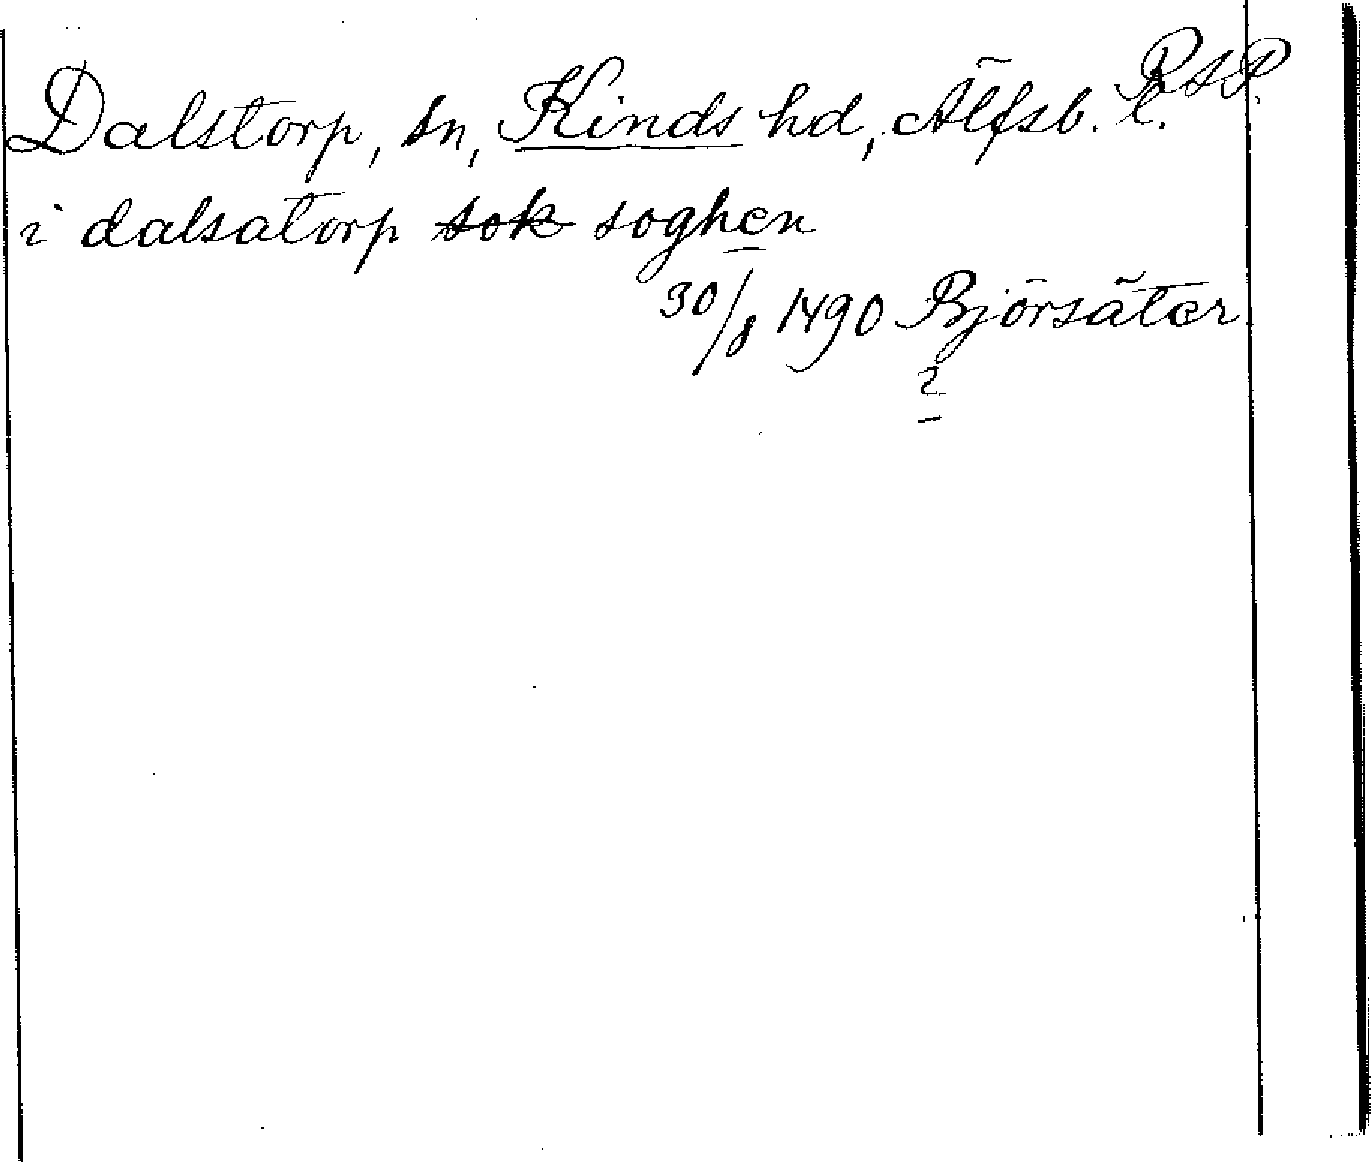 Dalstorp, sn, Kinds hd, Älfsb. l. RAP.
i dalsatorp sok soghen
30/8 1490 Björsäter
2